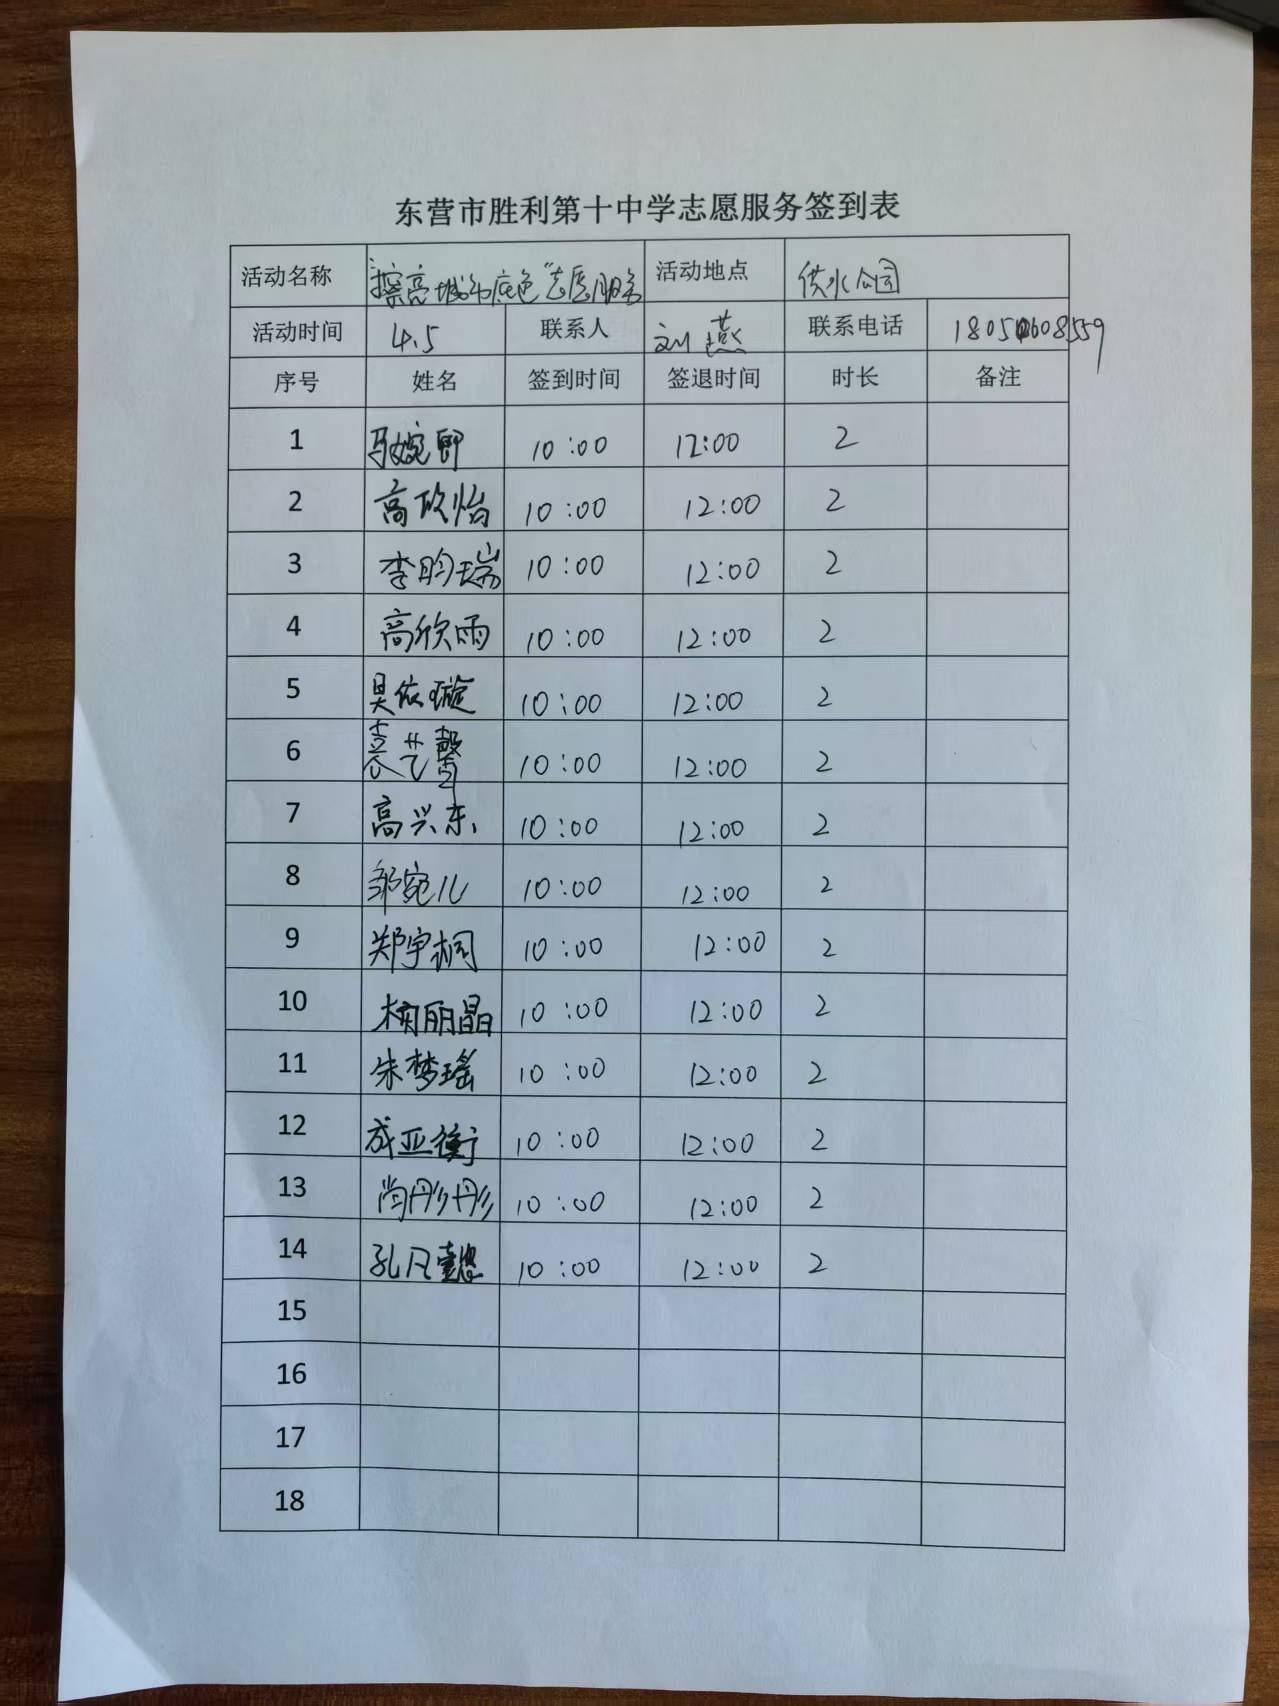 东营市胜利第十中学志愿服务签到表
活动名称 "擦亮城市底色"志愿服务 活动地点 供水公园
活动时间 4.5 联系人 刘燕 联系电话
序号 姓名 签到时间 签退时间 时长 备注
1 马婉卿 10:00 12:00 2
2 高欣怡 10:00 12:00 2
3 李昀瑞 10:00 12:00 2
4 高欣雨 10:00 12:00 2
5 吴依璇 10:00 12:00 2
6 袁艺馨 10:00 12:00 2
7 高兴东 10:00 12:00 2
8 邹宛儿 10:00 12:00 2
9 郑宇桐 10:00 12:00 2
10 杨丽晶 10:00 12:00 2
11 朱梦瑶 10:00 12:00 2
12 成亚衡 10:00 12:00 2
13 尚彤彤 10:00 12:00 2
14 孔凡懿 10:00 12:00 2
15
16
17
18